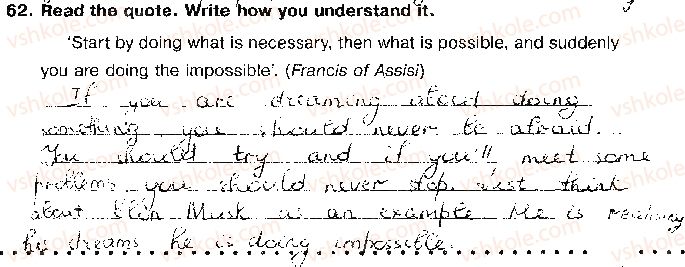 62. Read the quote. Write how you understand it.
'Start by doing what is necessary, then what is possible, and suddenly
you are doing the impossible'. (Francis of Assisi)
If you are dreaming about doing
something you should never be afraid.
You should try and if you'll meet some
problems you should never stop. Just think
about Elon Musk as an example He is reaching
his dreams he is doing impossible.